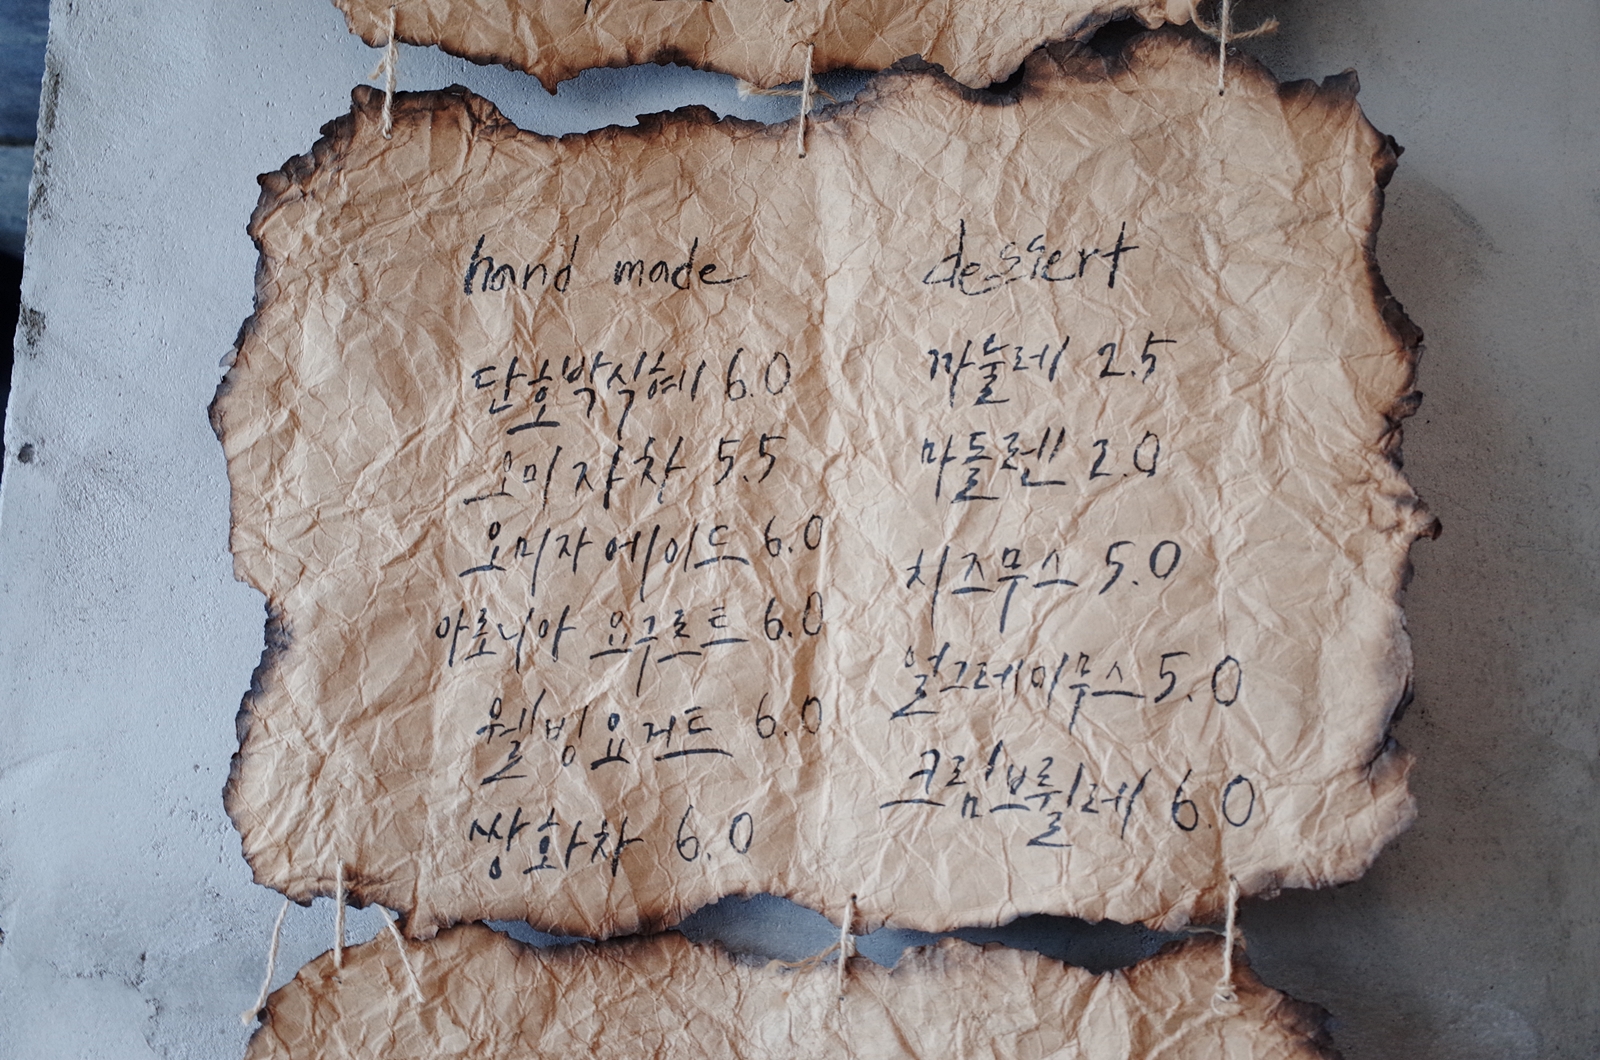 hand made
단호박식혜 6.0
오미자차 5.5
오미자에이드 6.0
아로니아 요구르트 6.0
웰빙요거트 6.0
쌍화차 6.0
dessert
까눌레 2.5
마들렌 2.0
치즈무스 5.0
얼그레이무스 5.0
크림브륄레 6.0